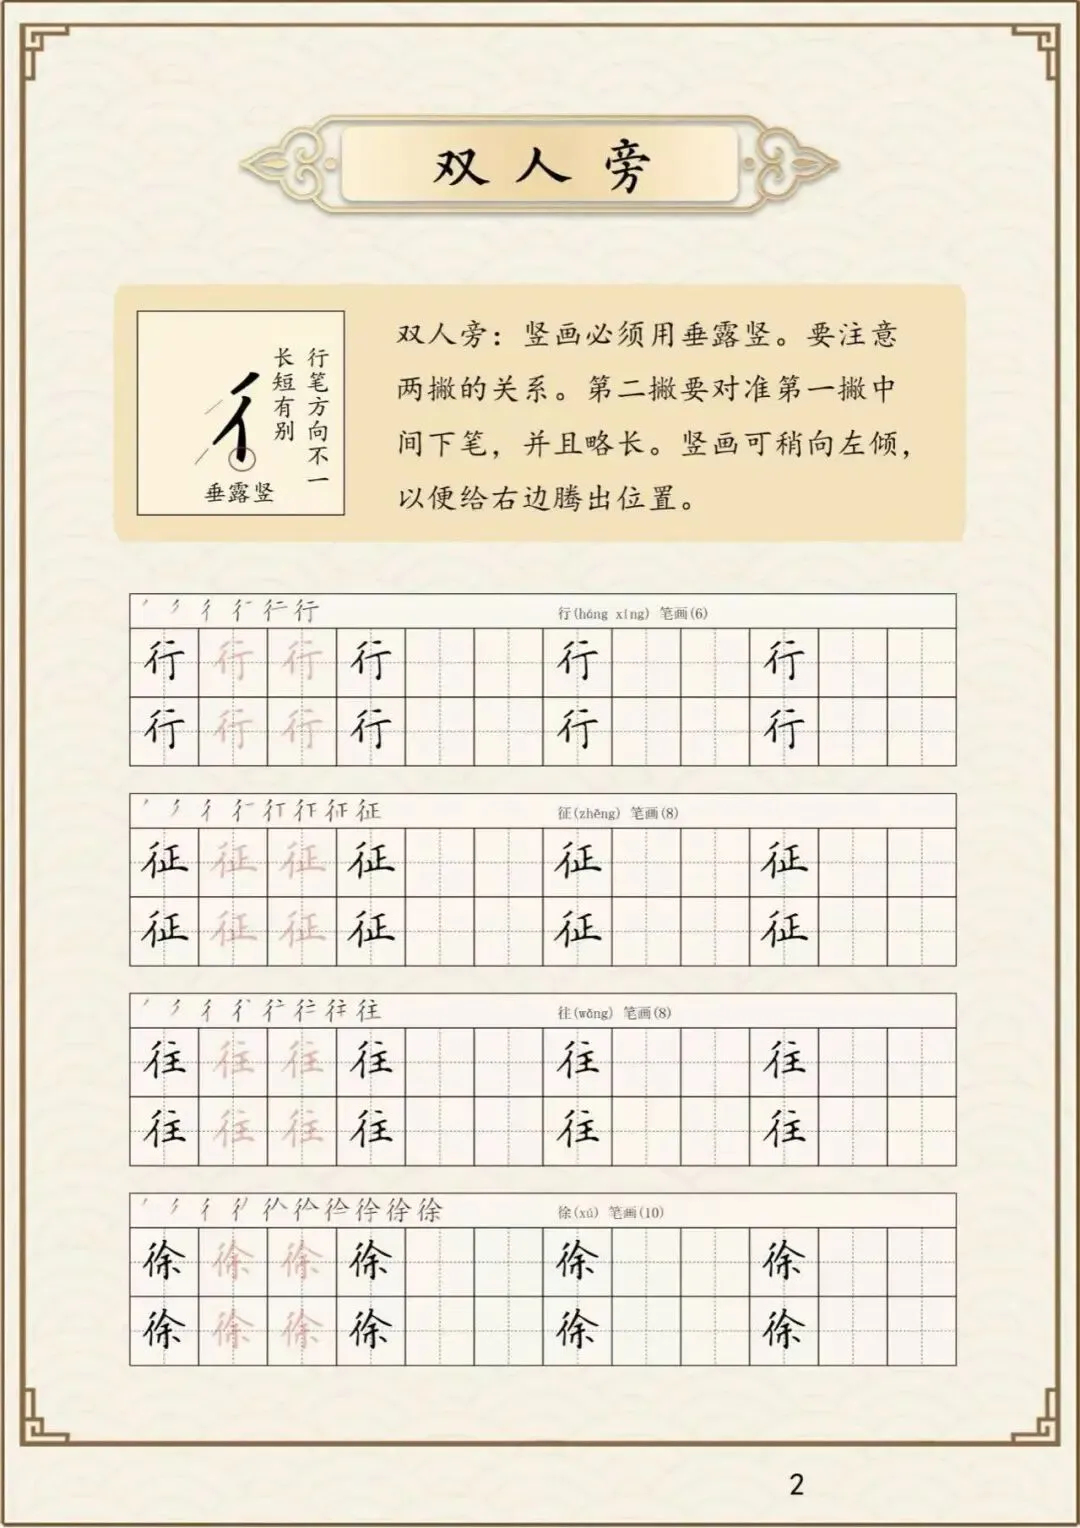 双人旁
行笔方向不一
长短有别
垂露竖
双人旁：竖画必须用垂露竖。要注意
两撇的关系。第二撇要对准第一撇中
间下笔，并且略长。竖画可稍向左倾，
以便给右边腾出位置。
行(háng xíng) 笔画(6)
行 行 行 行 行 行
行 行 行 行 行 行
征(zhēng) 笔画(8)
征 征 征 征 征 征
征 征 征 征 征 征
往(wǎng) 笔画(8)
往 往 往 往 往 往
往 往 往 往 往 往
徐(xú) 笔画(10)
徐 徐 徐 徐 徐 徐
徐 徐 徐 徐 徐 徐
2